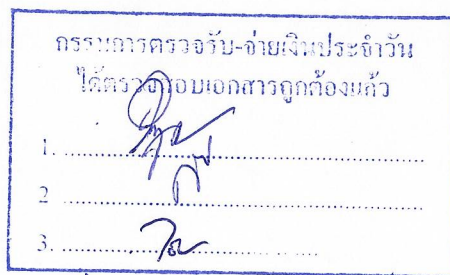 กรรมการตรวจรับ-จ่ายเงินประจำวัน
ได้ตรวจสอบเอกสารถูกต้องแล้ว
1. ........................................
2 ........................................
3. ........................................